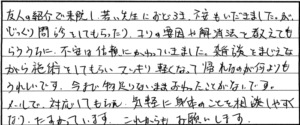 友人の紹介で来院し、若い先生におどろき、不安もいだきました。が、
じっくり問診をしてもらったり、コリの要因や解消法を教えても
らううちに、不安は信頼にかわっていきました。雑談をまじえな
がら施術をしてもらい、スッキリ軽くなって帰れるのが何よりも
うれしいです。今まで物足りないままおわったことがないです。
メールで、対応してもらえ、気軽に身体のことを相談しやすく
なり、たすかっています。これからもお願いします。